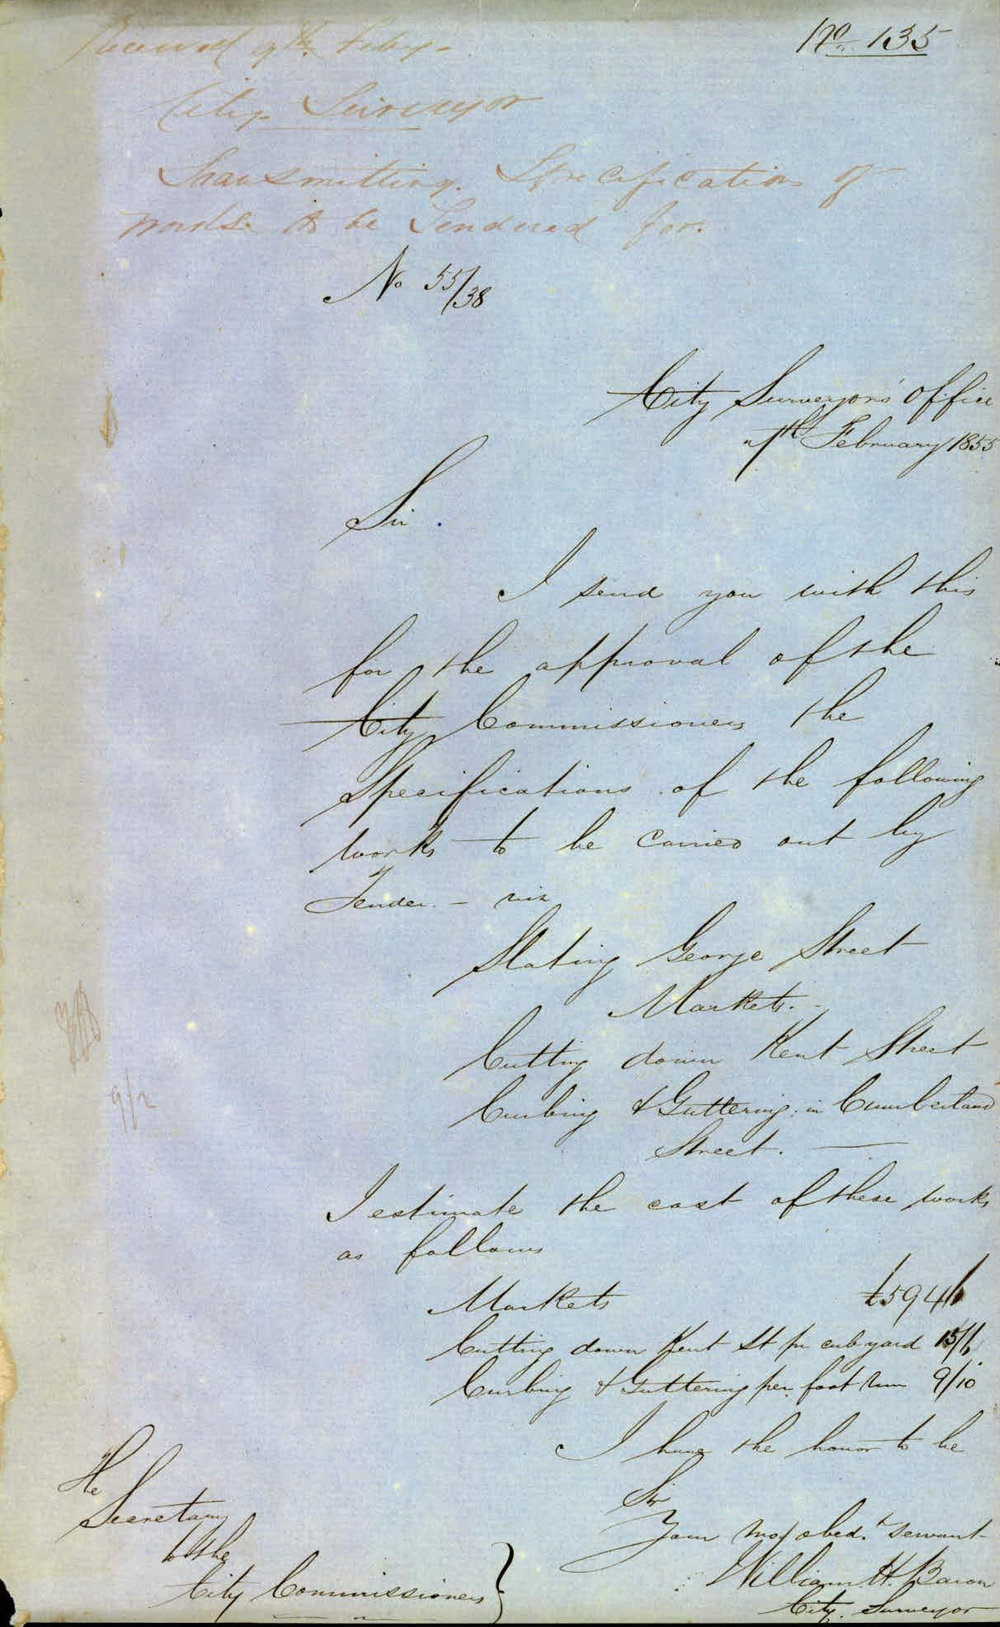 No. 135
Received 9th Feby.
City Surveyor
Transmitting Specification of
works to be Tendered for.
No 55/38
City Surveyors' Office
7th February 1855
Sir.
I send you with this
for the approval of the
City Commissioners the
Specifications of the following
works to be carried out by
Tender. — viz
Slating George Street
Markets. -
Cutting down Kent Street
Curbing & Guttering in Cumberland
Street. —
I estimate the cost of these works
as follows
Markets £594
Cutting down Kent St pr cub yard 15/6
Curbing & Guttering per foot run 9/10
I have the honor to be
Sir
Your most obedt servant
William H. Baron
City Surveyor
The
Secretary
to the
City Commissioners
9/2